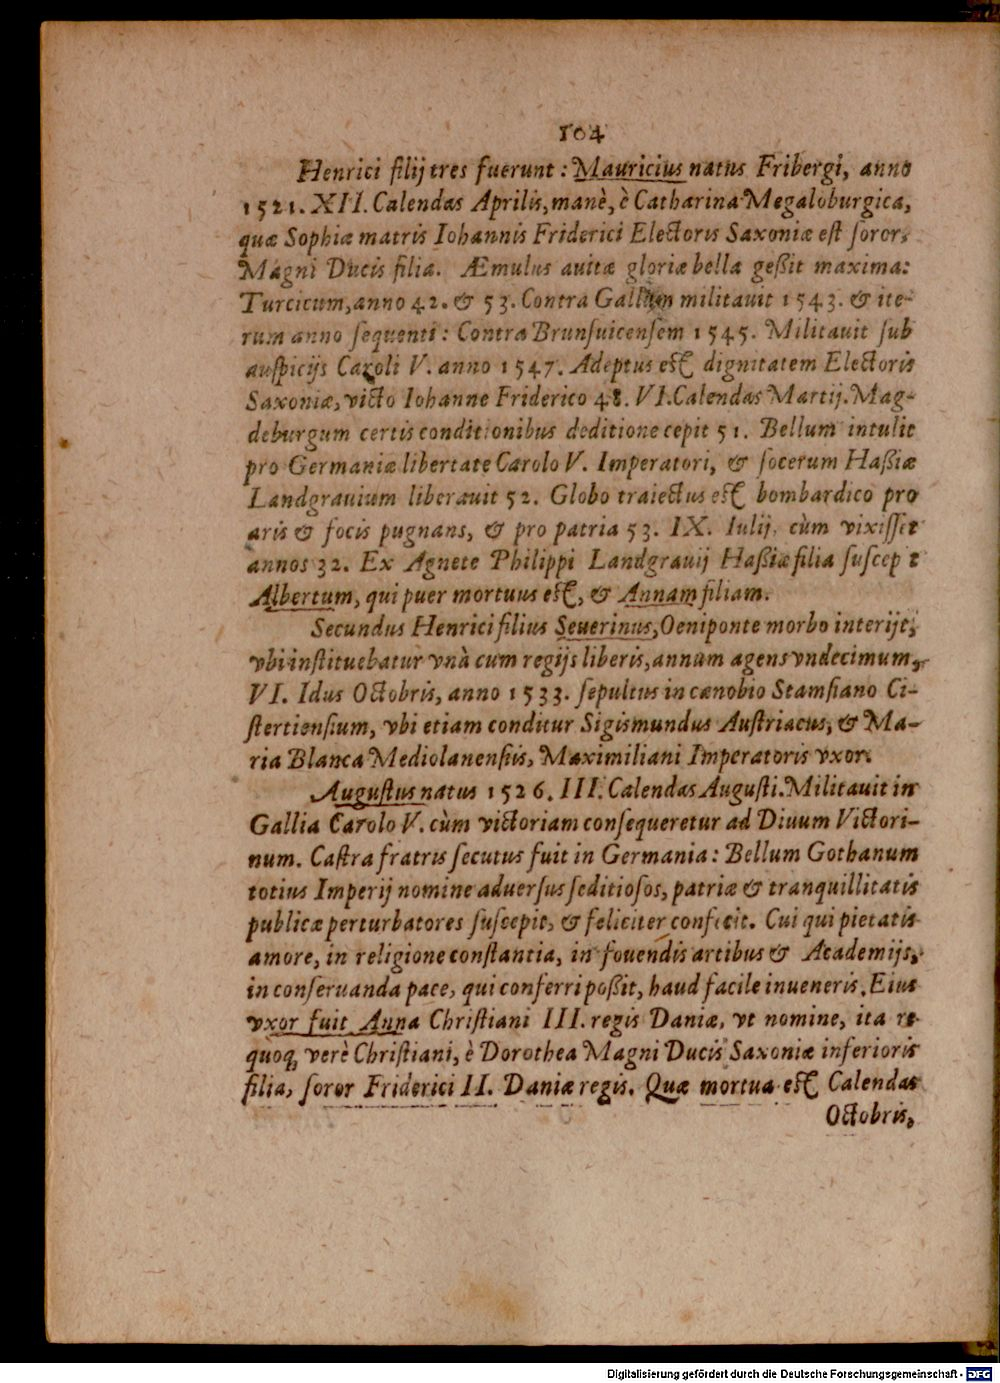 104
Henrici filij tres fuerunt : Mauricius natus Fribergi, anno
1521. XII. Calendas Aprilis, manè, è Catharina Megaloburgica,
quæ Sophiæ matris Iohannis Friderici Electoris Saxoniæ est soror,
Magni Ducis filia. Æmulus auitæ gloriæ bella geßit maxima:
Turcicum, anno 42. & 53. Contra Gallum militauit 1543. & ite-
rum anno sequenti : Contra Brunsuicensem 1545. Militauit sub
auspicijs Caroli V. anno 1547. Adeptus est dignitatem Electoris
Saxoniæ, victo Iohanne Friderico 48. VI. Calendas Martij. Mag-
deburgum certis conditionibus deditione cepit 51. Bellum intulit
pro Germaniæ libertate Carolo V. Imperatori, & socerum Haßiæ
Landgrauium liberauit 52. Globo traiectus est bombardico pro
aris & focis pugnans, & pro patria 53. IX. Iulij, cùm vixisset
annos 32. Ex Agnete Philippi Landgrauij Haßiæ filia suscep t
Albertum, qui puer mortuus est, & Annam filiam.
Secundus Henrici filius Seuerinus, Oeniponte morbo interijt,
vbi instituebatur vnà cum regijs liberis, annum agens vndecimum,
VI. Idus Octobris, anno 1533. sepultus in cænobio Stamsiano Ci-
stertiensium, vbi etiam conditur Sigismundus Austriacus, & Ma-
ria Blanca Mediolanensis, Maximiliani Imperatoris vxor.
Augustus natus 1526. III. Calendas Augusti. Militauit in
Gallia Carolo V. cùm victoriam consequeretur ad Diuum Victori-
num. Castra fratris secutus fuit in Germania : Bellum Gothanum
totius Imperij nomine aduersus seditiosos, patriæ & tranquillitatis
publicæ perturbatores suscepit, & feliciter confecit. Cui qui pietatis
amore, in religione constantia, in fouendis artibus & Academijs,
in conseruanda pace, qui conferri poßit, haud facile inueneris. Eius
vxor fuit Anna Christiani III. regis Daniæ, vt nomine, ita re
quoq; verè Christiani, è Dorothea Magni Ducis Saxoniæ inferioris
filia, soror Friderici II. Daniæ regis. Quæ mortua est Calendas
Octobris,
Digitalisierung gefördert durch die Deutsche Forschungsgemeinschaft - DFG